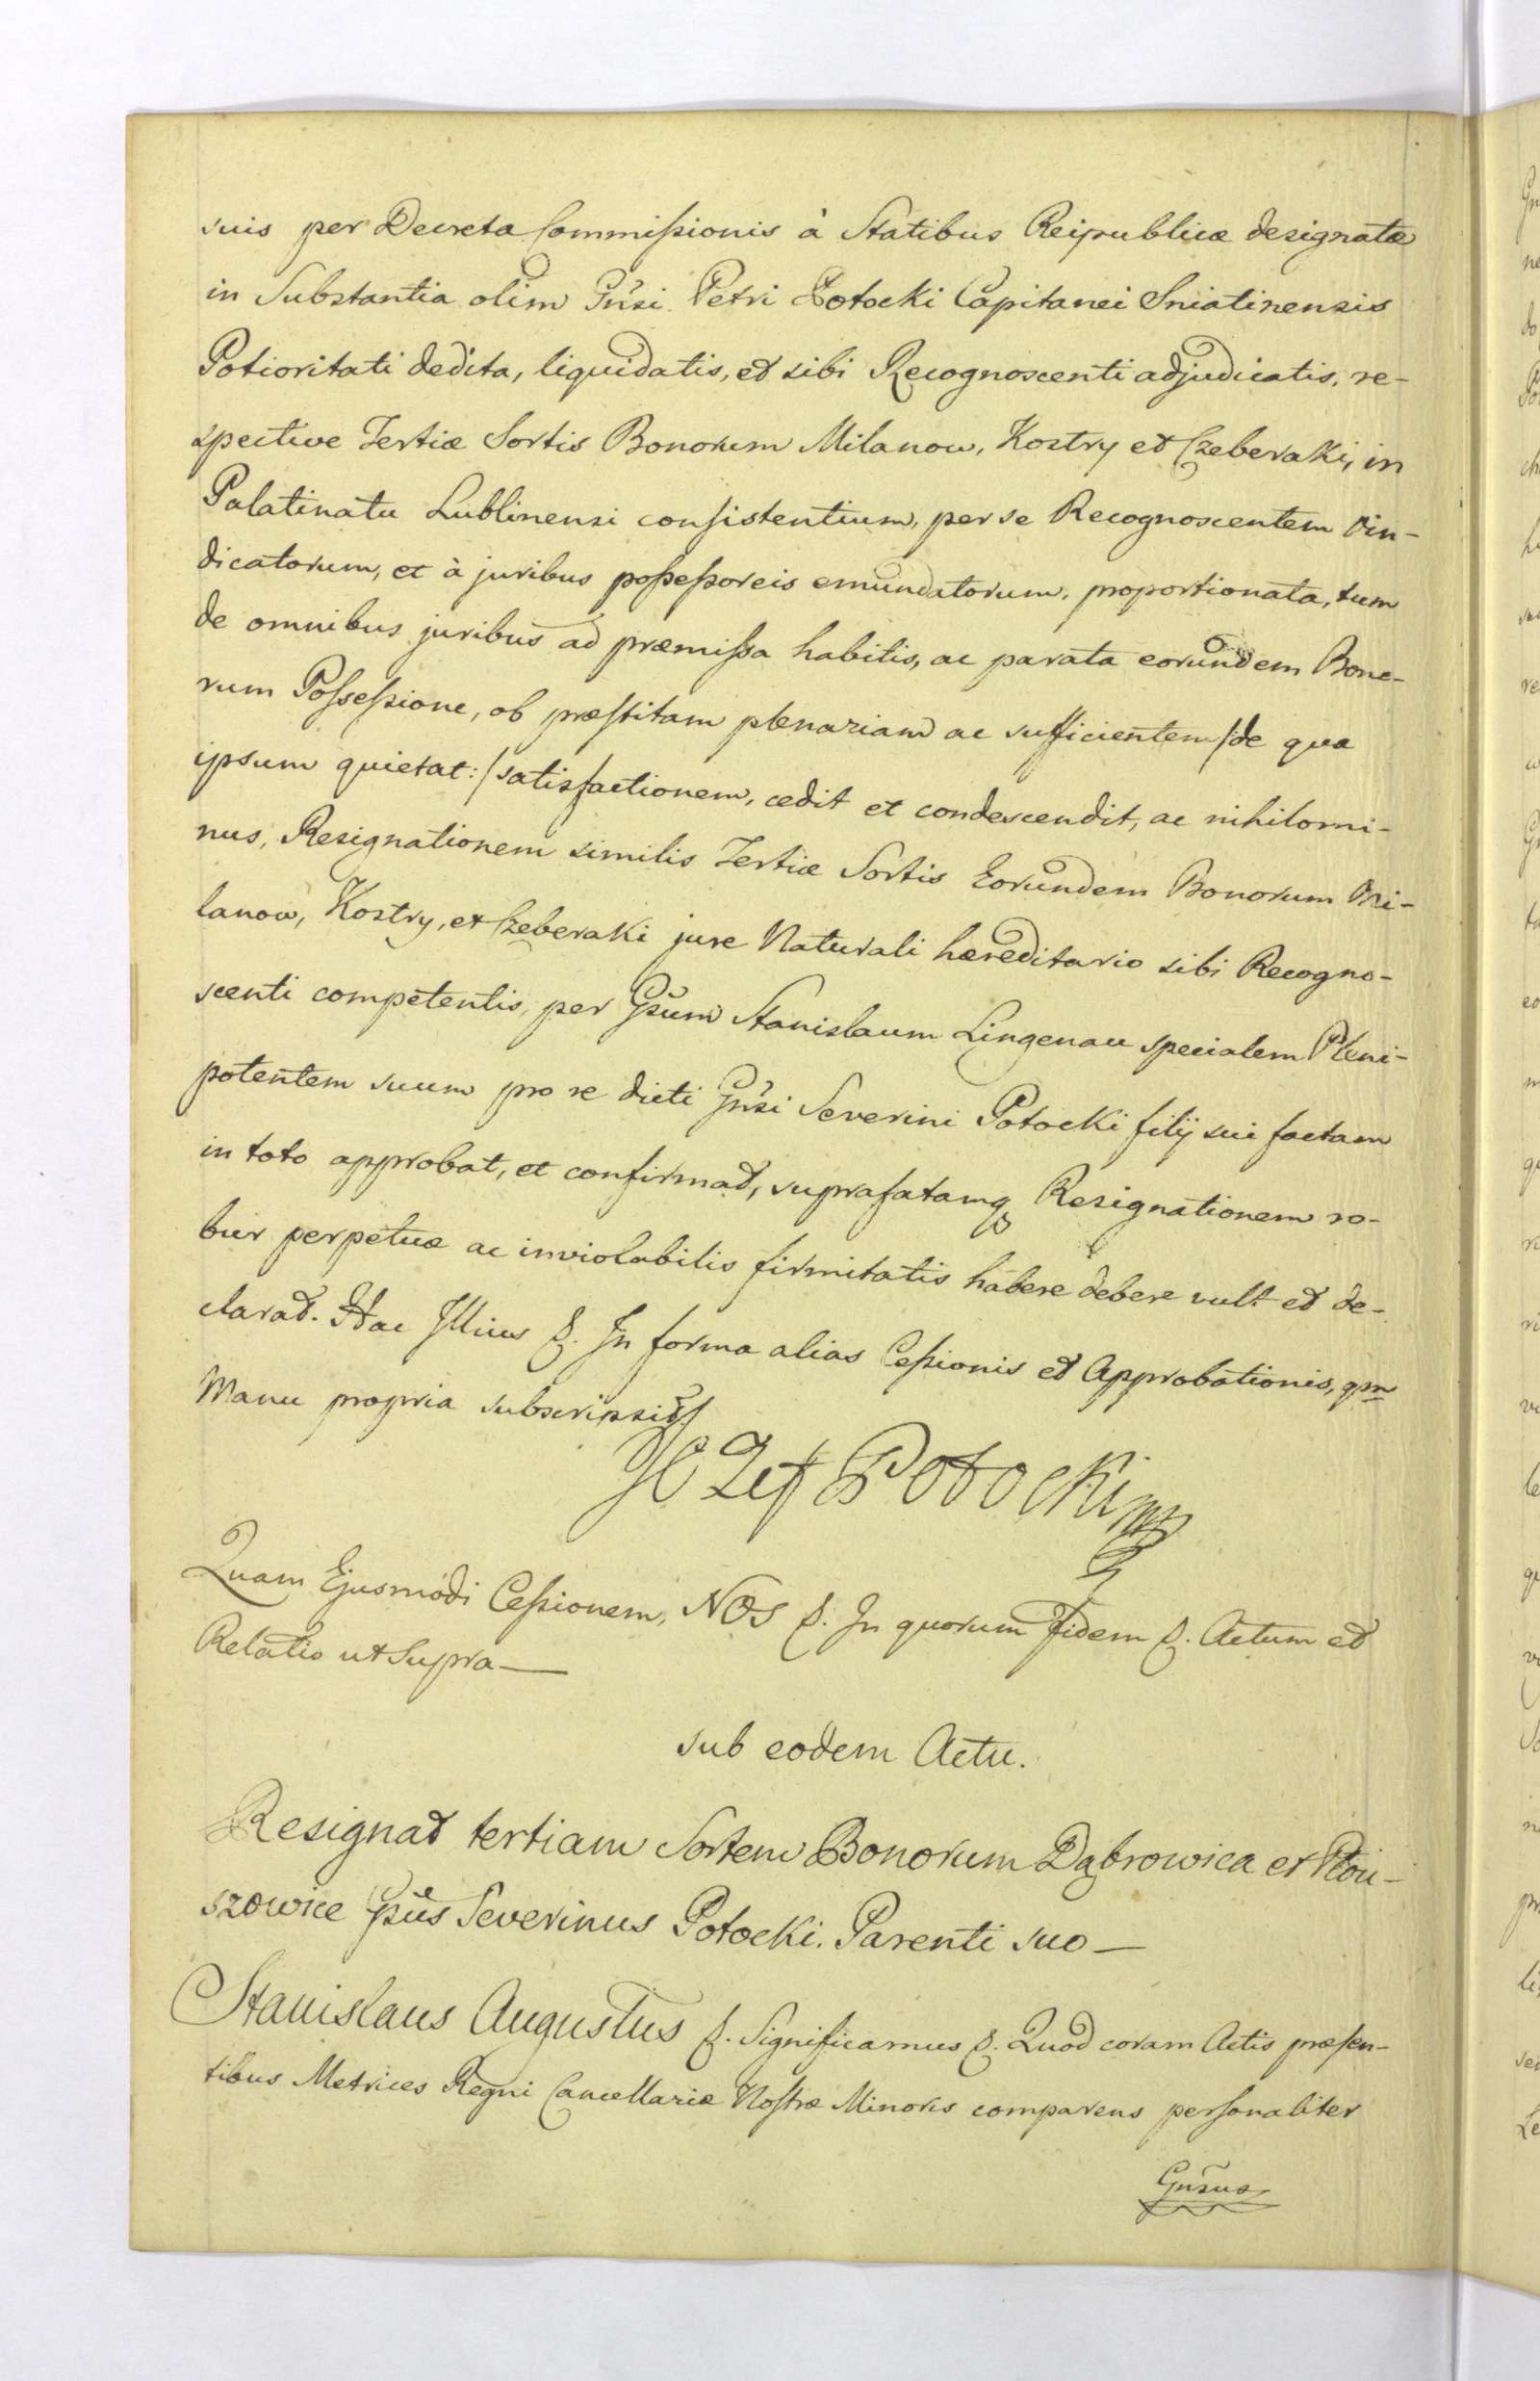 suis per Decreta Commissionis à Statibus Reipublicæ designatæ
in Substantia olim Gnsi Petri Potocki Capitanei Sniatinensis
Potioritati dedita, liquidatis, et sibi Recognoscenti adjudicatis, re-
spective Tertiæ Sortis Bonorum Milanow, Kostry et Czeberaki, in
Palatinatu Lublinensi consistentium, per se Recognoscentem vin-
dicatorum, et à juribus possessoreis emundatorum, proportionata, tum
de omnibus juribus ad præmissa habitis, ac parata eorundem Bono-
rum Possessione, ob præstitam plenariam ac sufficientem /:de qua
ipsum quietat:/ satisfactionem, cedit et condescendit, ac nihilomi-
nus, Resignationem similis Tertiæ Sortis Eorundem Bonorum Mi-
lanow, Kostry, et Czeberaki jure Naturali hæreditario sibi Recogno-
scenti competentis, per Gsum Stanislaum Lingenau specialem Pleni-
potentem suum pro re dicti Gnsi Severini Potocki filij sui factam
in toto approbat, et confirmat, suprafatamq Resignationem ro-
bur perpetuæ ac inviolabilis firmitatis habere debere vult et de-
clarat. Hac Illius &. In forma alias Cessionis et Approbationis, qm
Manu propria subscripsit
Jozef Potocki mp
Quam Ejusmodi Cessionem, NOS &. In quorum fidem &. Actum et
Relatio ut Supra—
sub eodem Actu.
Resignat tertiam Sortem Bonorum Dąbrowica et Plou-
szowice Gsus Severinus Potocki. Parenti suo—
Stanislaus Augustus &. Significamus &. Quod coram Actis præsen-
tibus Metrices Regni Cancellariæ Nostræ Minoris comparens personaliter
Gnsus